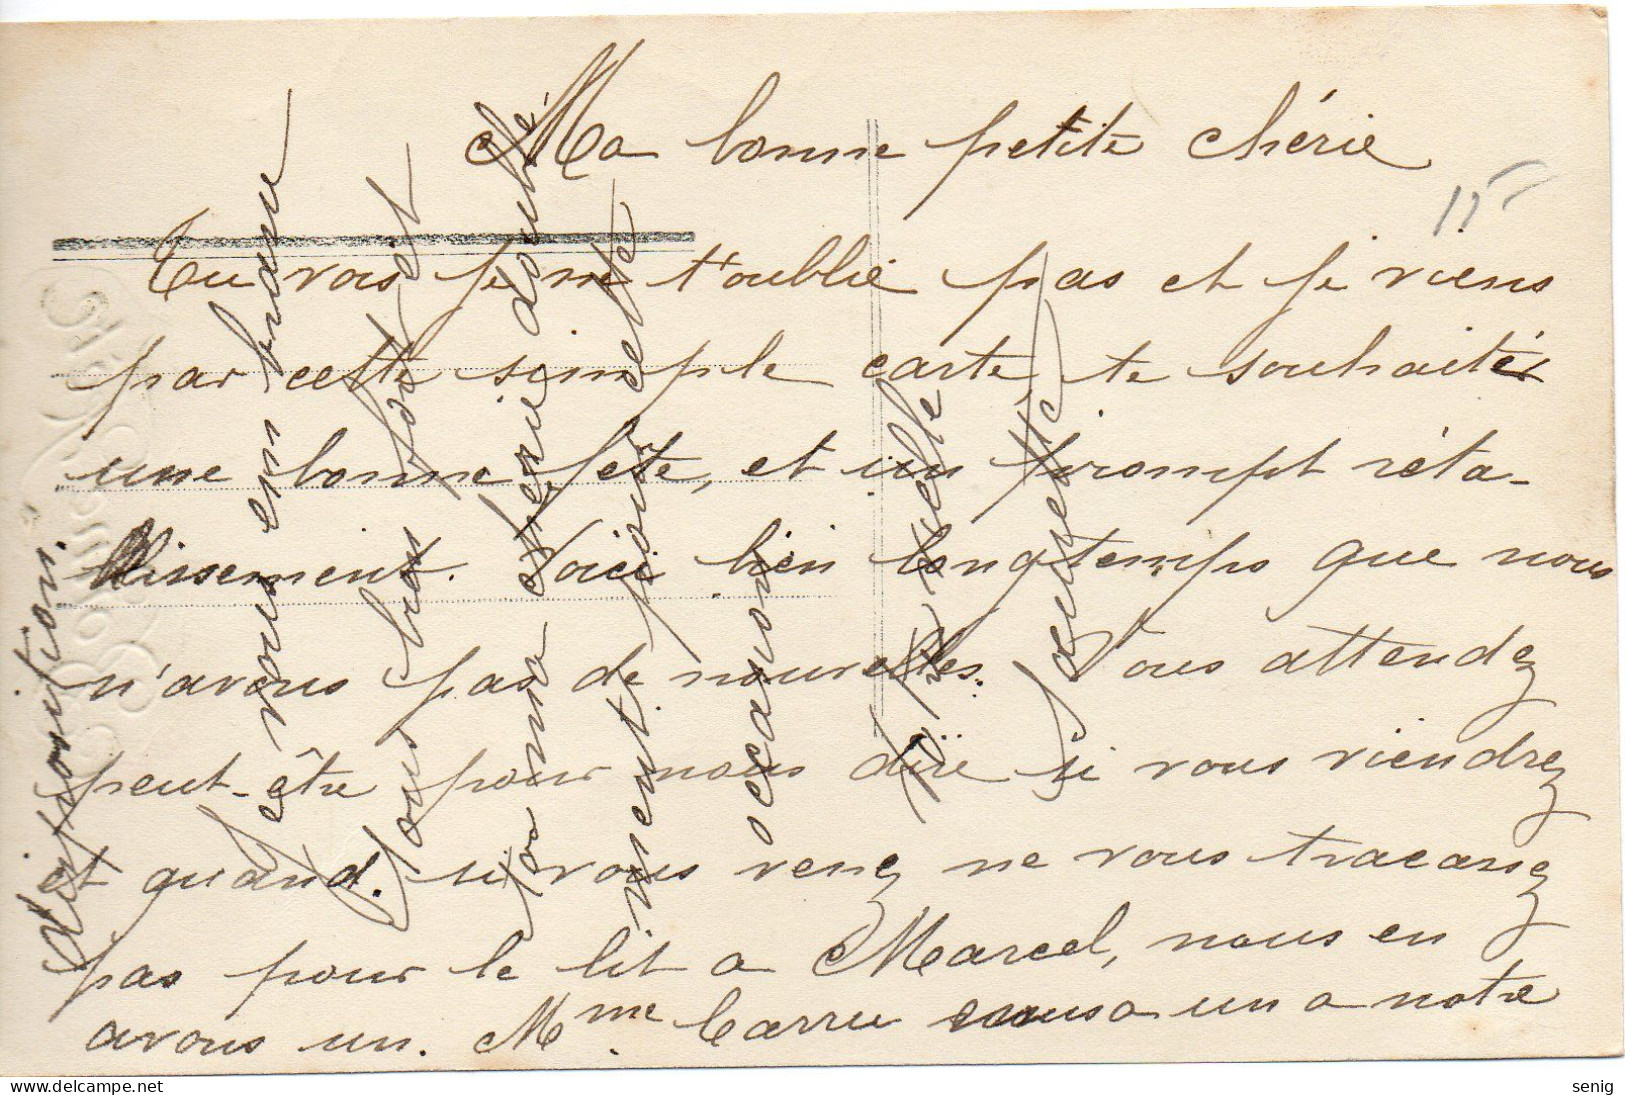 Ma bonne petite chérie
Tu vois je ne t'oublie pas et je viens
par cette simple carte, te souhaiter
une bonne fête, et un prompt réta-
blissement. Voici bien longtemps que nous
n'avons pas de nouvelles. Vous attendez
peut-être pour nous dire si vous viendrez
et quand. si vous venez ne vous tracassez
pas pour le lit a Marcel, nous en
avons un. Mme Carru en a un a notre
disposition.
Je vous embrasse
Tous bien fort et
Toi ma chérie doublé
ment pour cette
occasion
Ta belle
Jeannette
15
senig